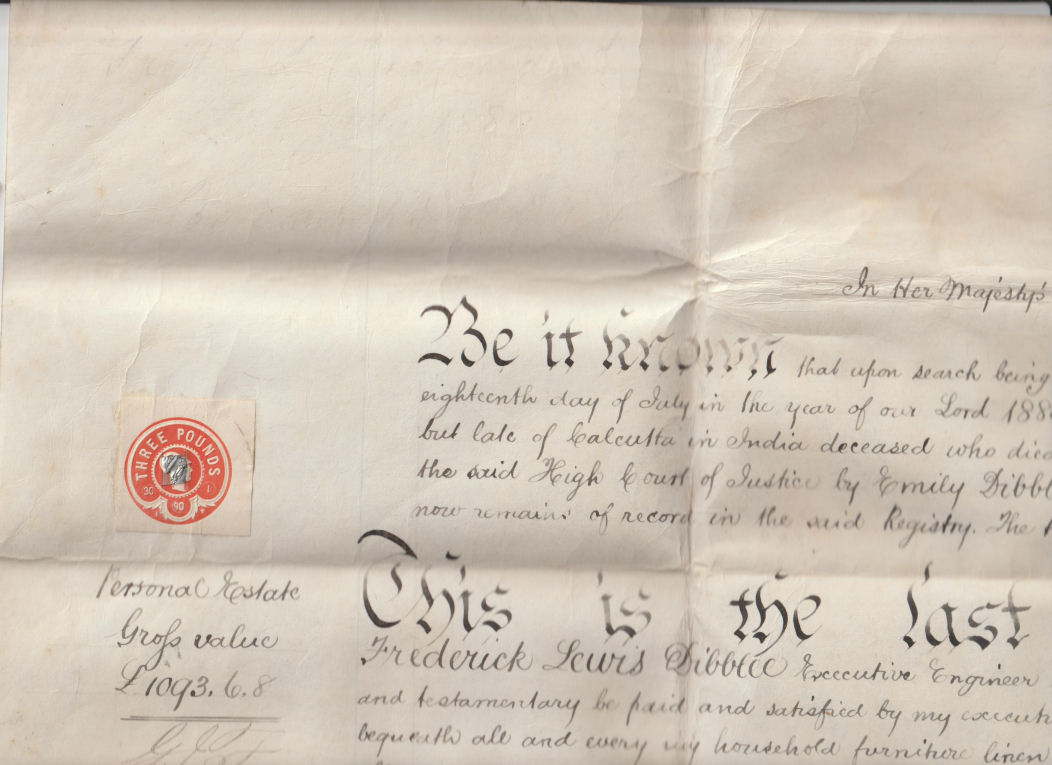 In Her Majesty's
Be it known that upon search being
eighteenth day of July in the year of our Lord 188
but late of Calcutta in India deceased who died
the said High Court of Justice by Emily Dibbl
now remains of record in the said Registry. The
THREE POUNDS
30 1
90
Personal Estate
Gross value
£1093.6.8
This is the last
Frederick Lewis Dibblee Executive Engineer
and testamentary be paid and satisfied by my execut
bequeath all and every my household furniture linen